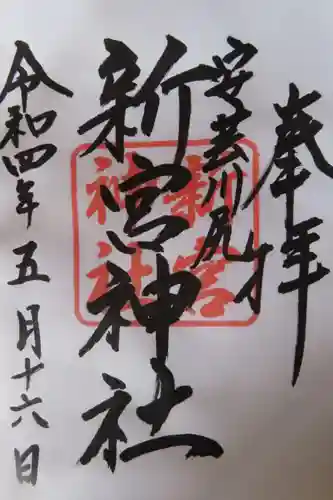 奉拝
安芸川尻
新宮神社
新宮
神社
令和四年五月十六日